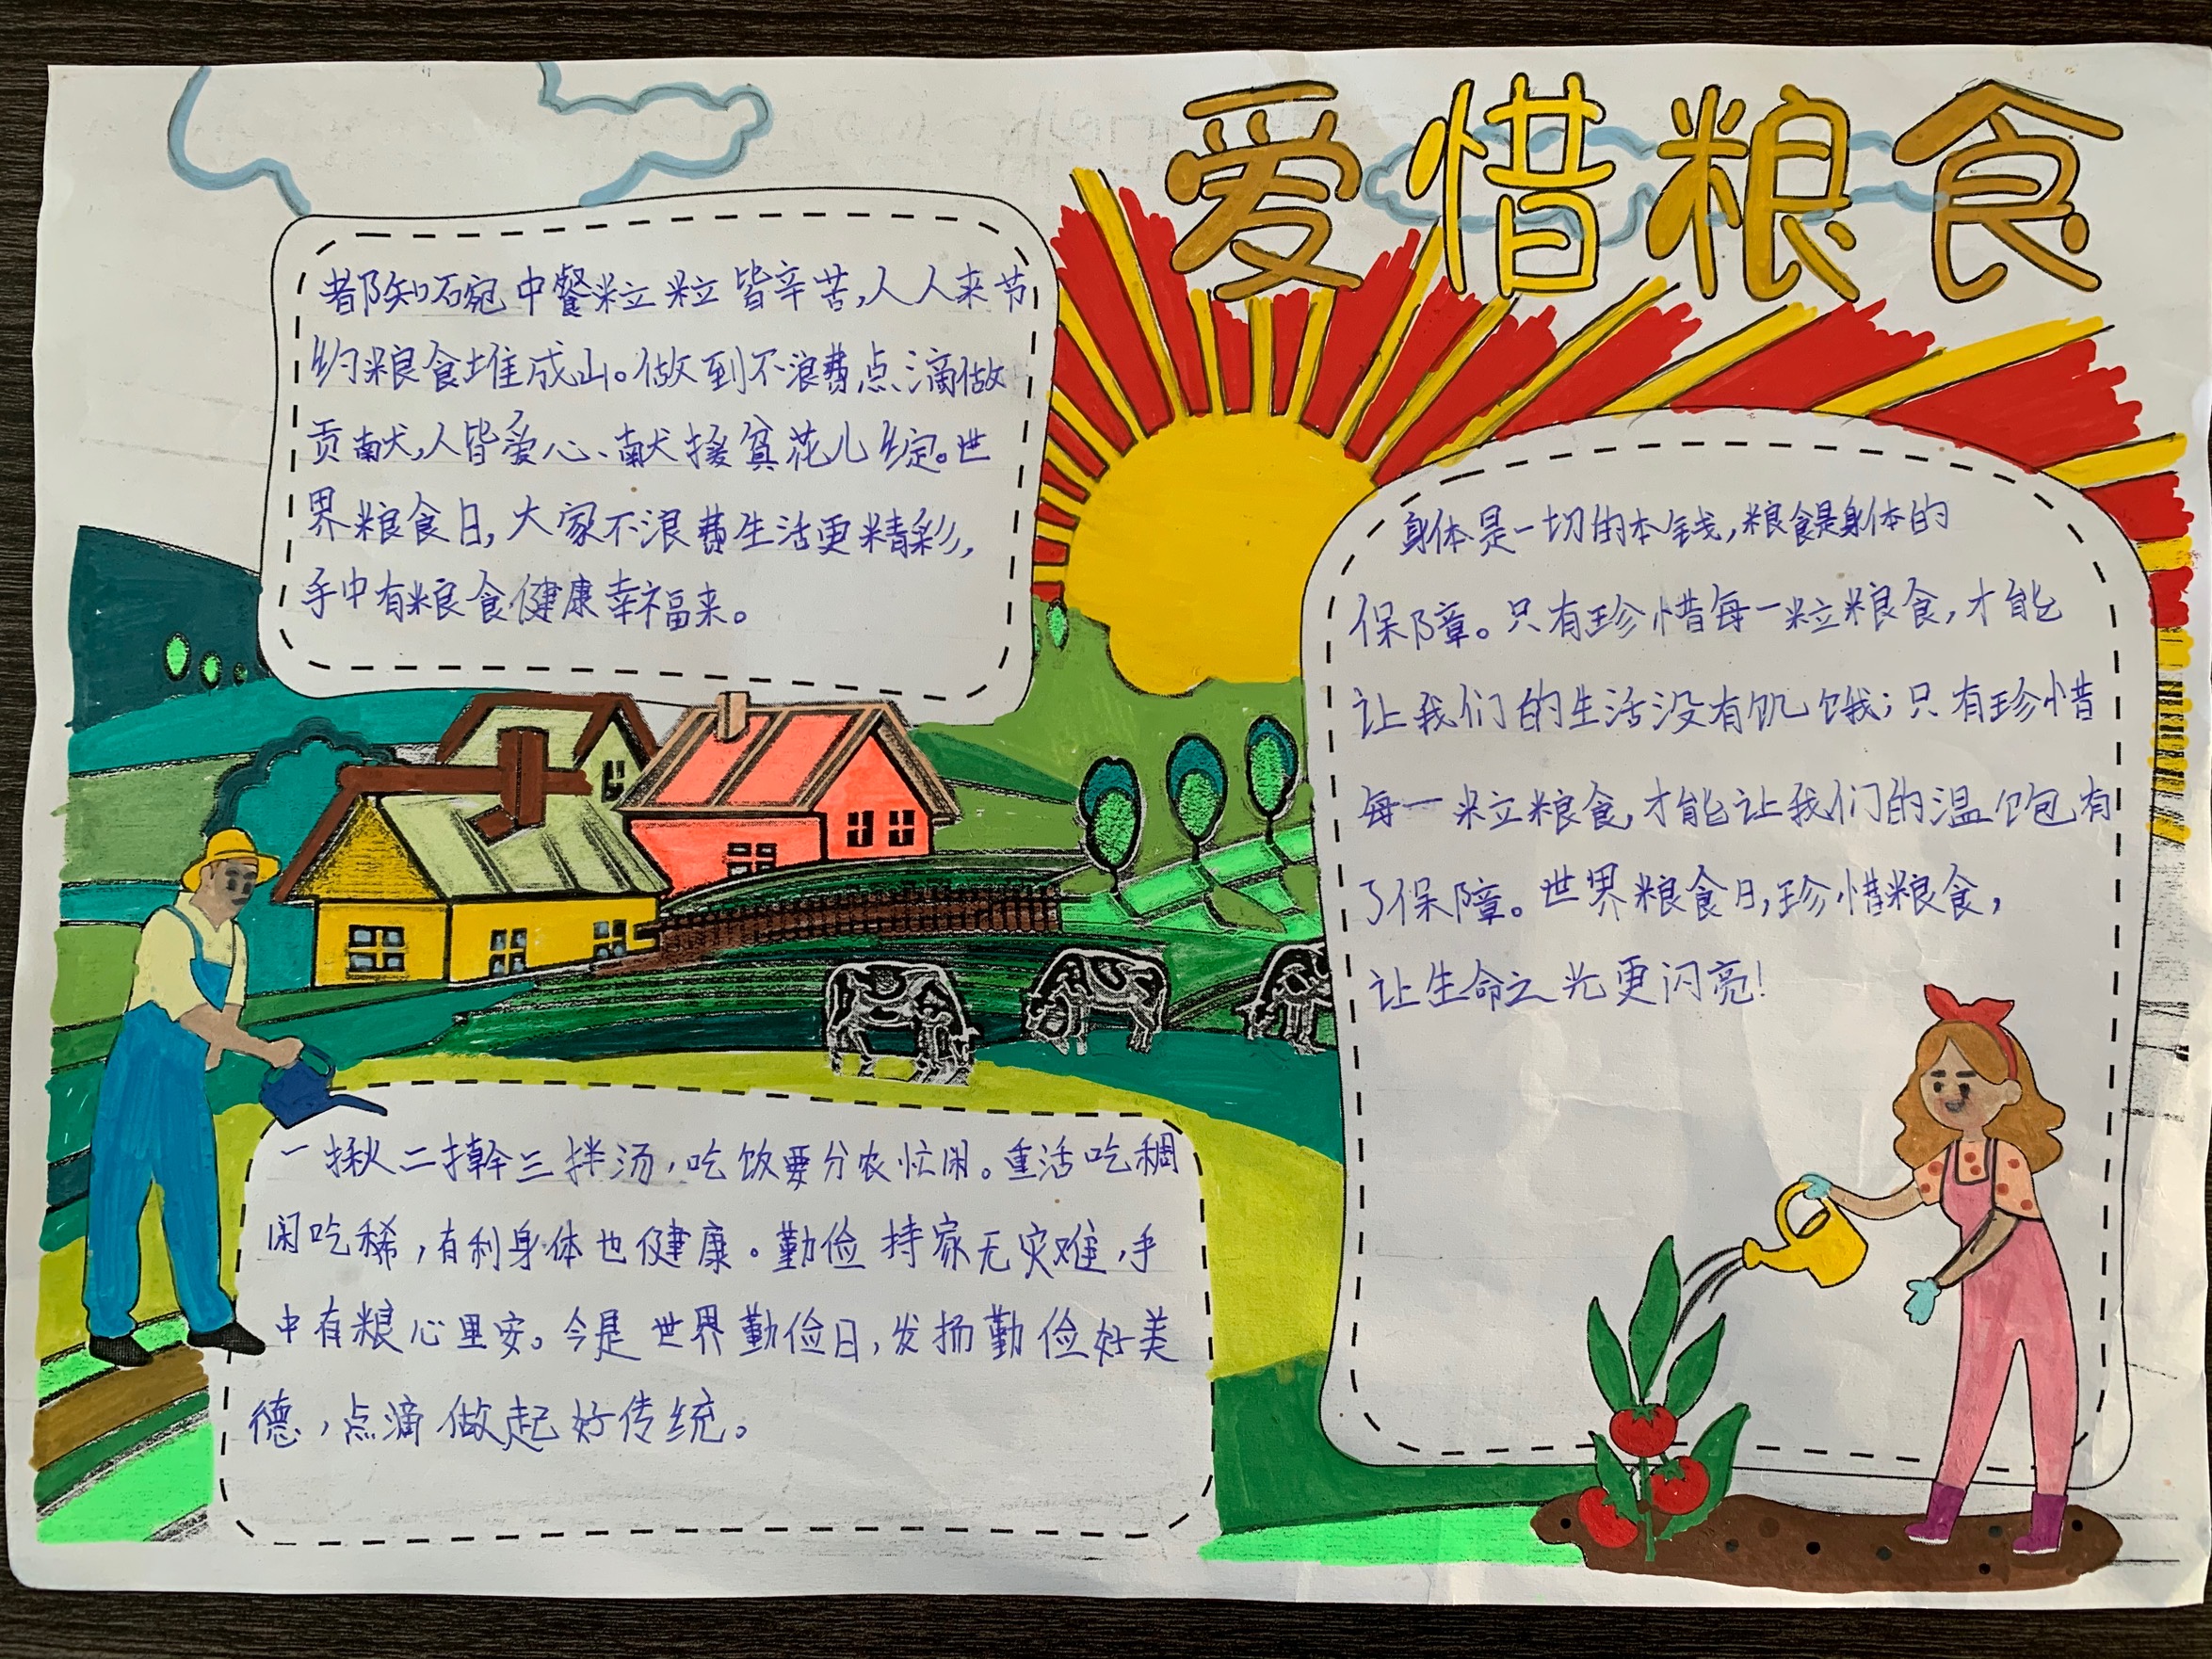 爱惜粮食
都知碗中餐粒粒皆辛苦,人人来节
约粮食堆成山。做到不浪费点滴做
贡献,人皆爱心、献援贫花儿绽。世
界粮食日,大家不浪费生活更精彩,
手中有粮食健康幸福来。
身体是一切的本钱,粮食是身体的
保障。只有珍惜每一粒粮食,才能
让我们的生活没有饥饿;只有珍惜
每一粒粮食,才能让我们的温饱有
了保障。世界粮食日,珍惜粮食,
让生命之光更闪亮!
一揪二擀三拌汤,吃饮要分农忙闲。重活吃稠
闲吃稀,有利身体也健康。勤俭持家无灾难,手
中有粮心里安。今是世界勤俭日,发扬勤俭好美
德,点滴做起好传统。